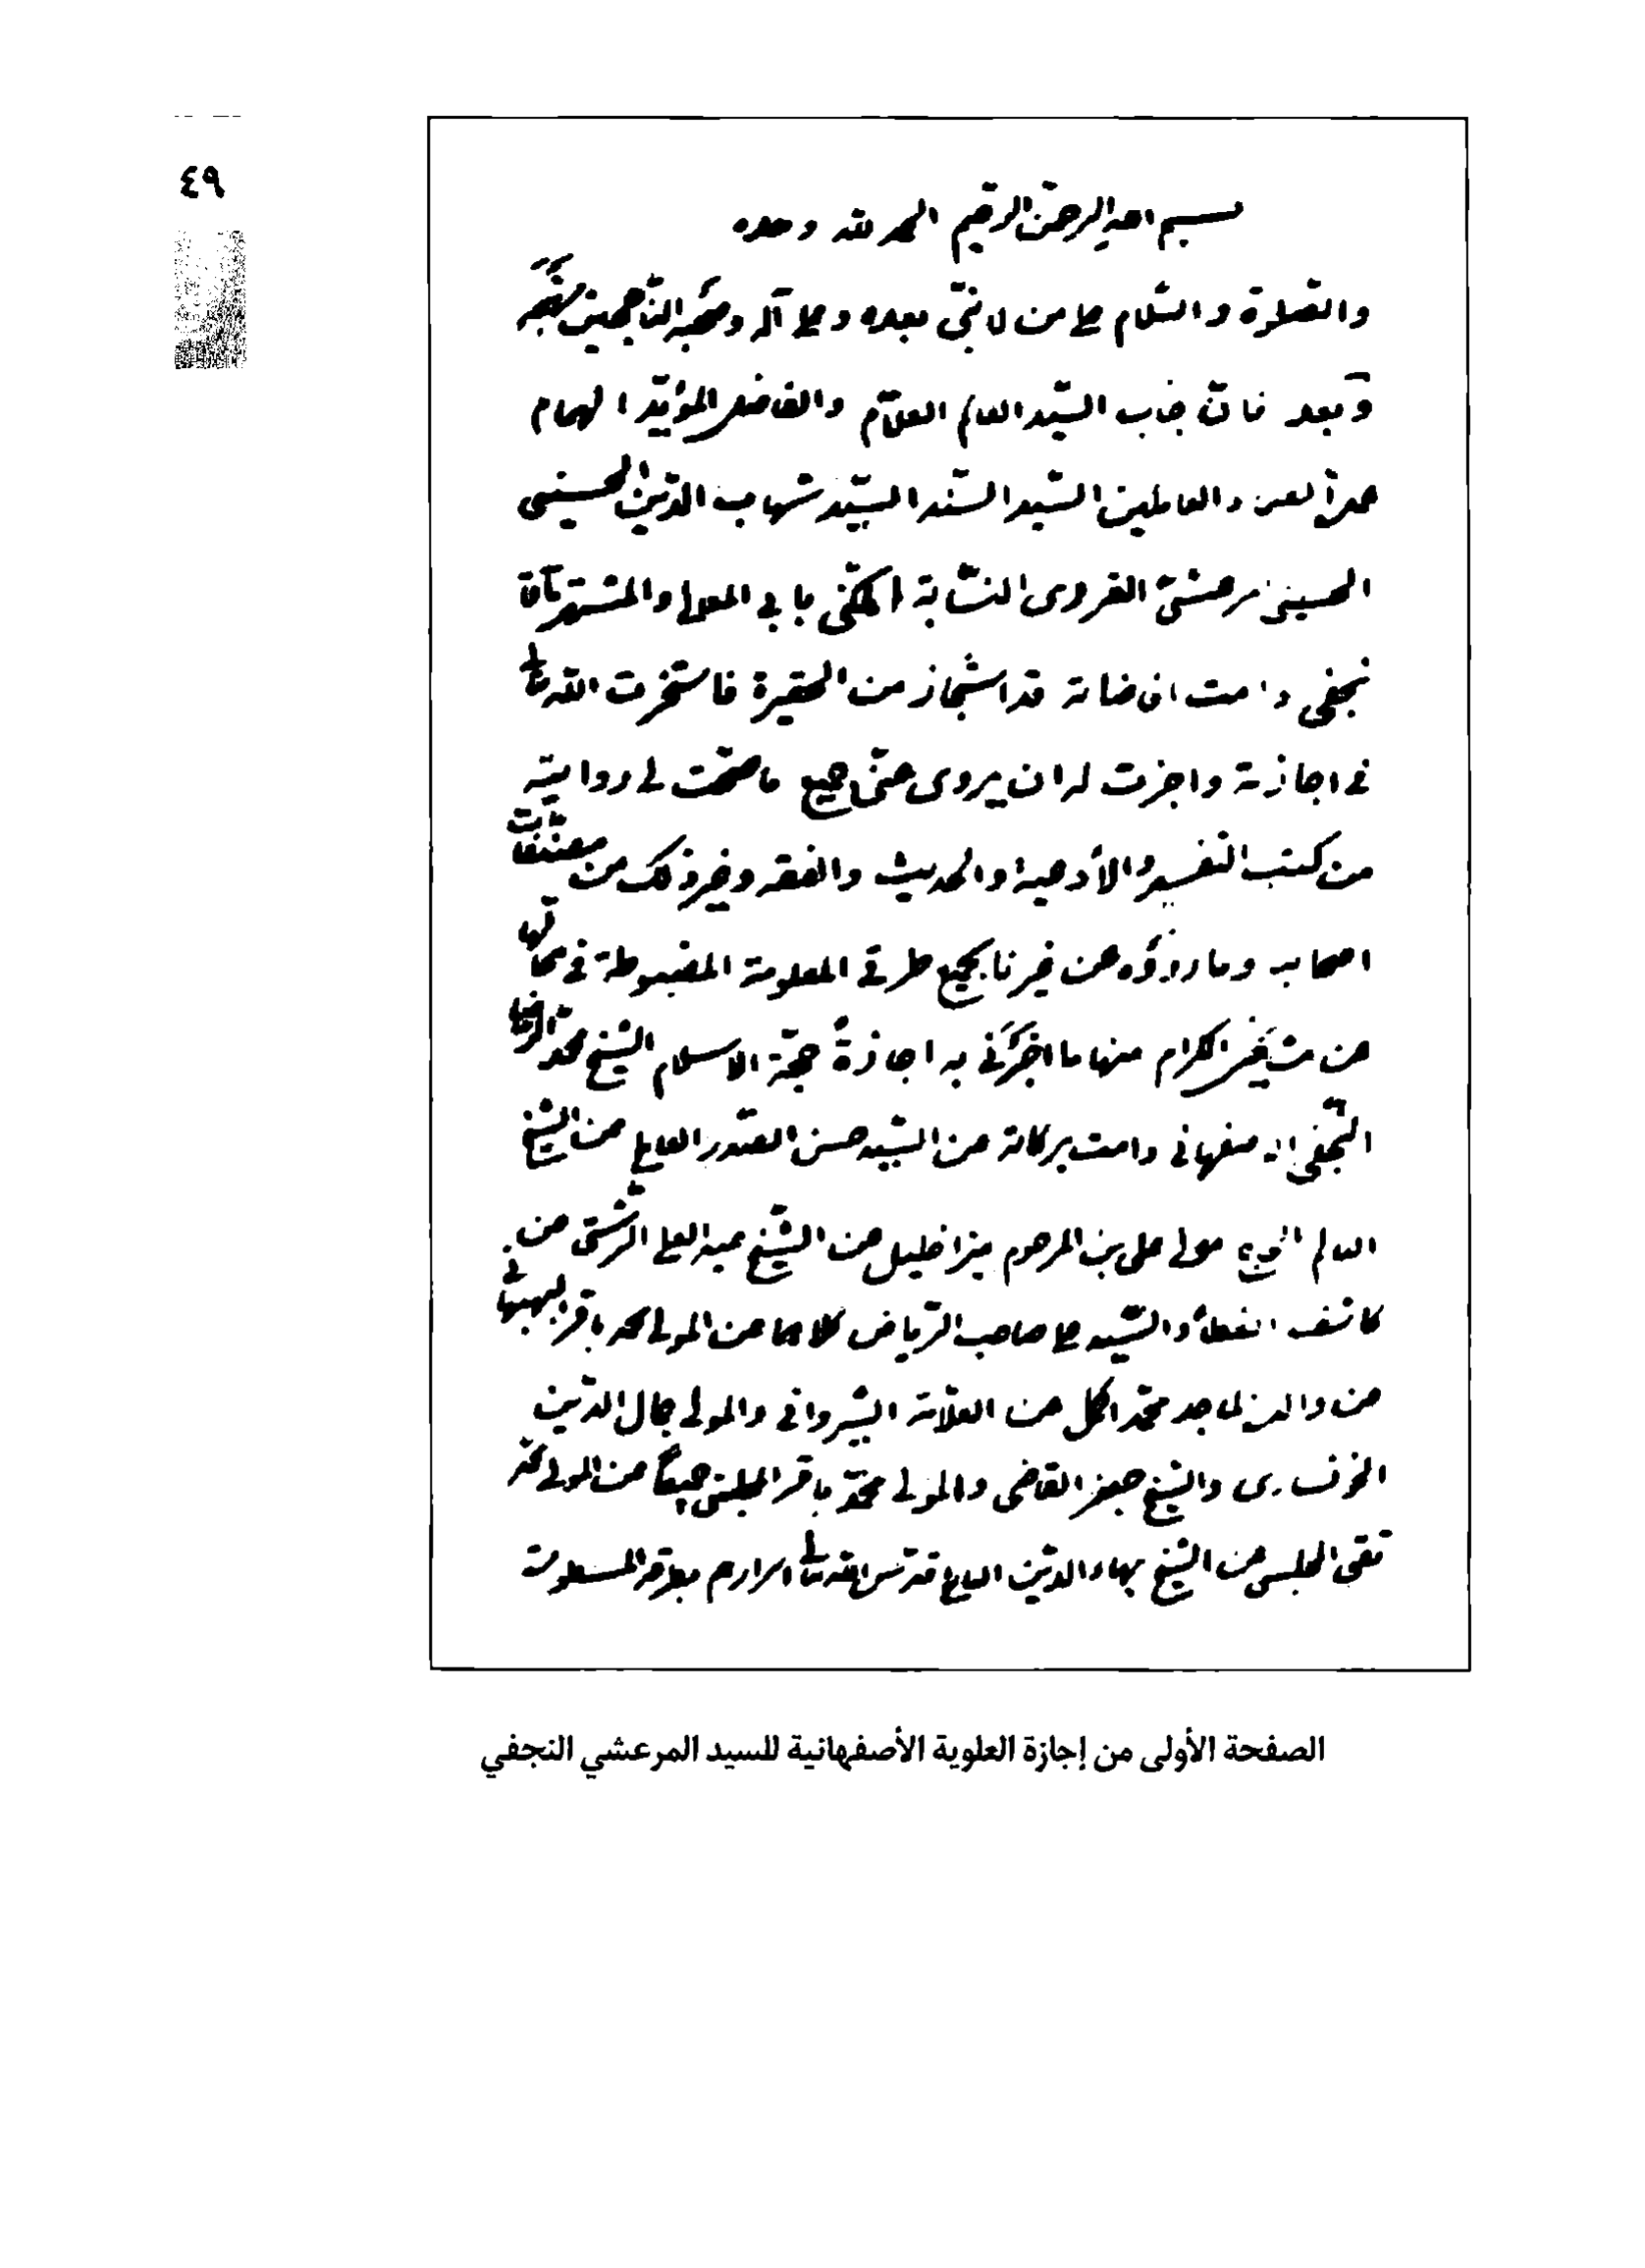 ٤٩
بسم الله الرحمن الرحيم الحمد لله وحده
والصلوة والسّلام على من لا نبىّ بعده وعلى آله وصحبه الناهجين نهجه
وبعد فان جناب السّيد العالم العلّام والفاضل المؤيّد الهمام
والعاملين السّيد السّند السّيد شهاب الدّين الحسينى
الحسينى مرعشىّ الغروى النسّابة المكنّى بابى المعالى والمشتهر بآقا
نجفى دامت افاضاته قد استجاز من الحقيرة فاستخرت الله تعالى
فى اجازته واجزت له ان يروى عنّى جميع ما صحّت لى روايته
من كتب التفسير والأدعية والحديث والفقه وغير ذلك من مصنّفات
اصحابنا وما رووه عن غيرنا بجميع طرقى المعلومة المضبوطة فى محالّها
عن مشايخى الكرام منها ما اخبرنى به اجازةً حجّة الاسلام الشيخ محمّد الرضا
النّجفى الاصفهانى دامت بركاته عن السّيد حسن الصّدر العاملى عن الشيخ
العالم مولى على بن المرحوم ميرزا خليل عن الشّيخ عبد العلى الرّشتى عن
كاشف الغطاء والسّيد على صاحب الرّياض كلاهما عن المولى محمد باقر البهبهانى
عن والده الماجد محمّد اكمل عن العلّامة الشّيروانى والمولى جمال الدّين
الخونسارى والشيخ جعفر القاضى والمولى محمّد باقر المجلسى جميعاً عن المولى محمّد
تقى المجلسى عن الشّيخ بهاء الدّين العاملى قدّس الله تعالى اسرارهم بطرقه المسطورة
الصفحة الأولى من إجازة العلوية الأصفهانية للسيد المرعشي النجفي